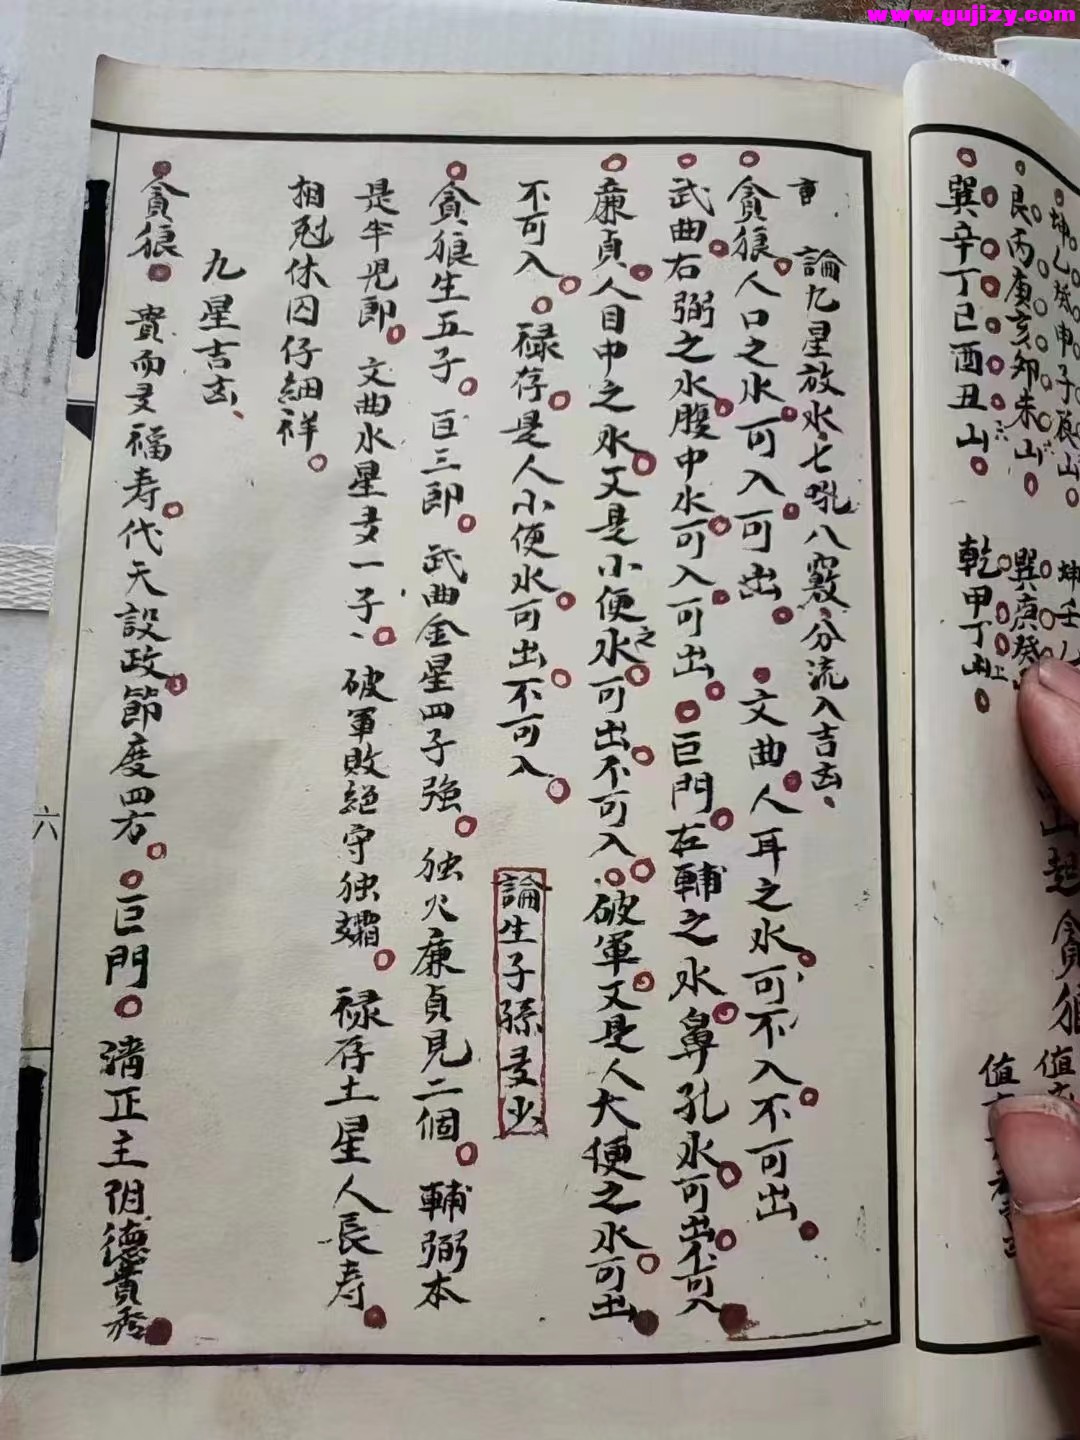 www.gujizy.com
坤乙 申子辰山 坤壬乙
艮丙庚亥卯未山 巽庚癸
巽辛丁巳酉丑山 乾甲丁山
山起貪狼
值
值
論九星放水七吼八竅分流入吉凶、
貪狼人口之水可入可出 文曲人耳之水可不入不可出
武曲右弼之水腹中水可入可出 巨門左輔之水鼻孔水可出不可入
廉貞人目中之水又是小便之水可出不可入 破軍又是人大便之水可出
不可入 禄存是人小便水可出不可入 論生子孫多少
貪狼生五子 巨三郎 武曲金星四子強 独火廉貞見二個 輔弼本
是半兒郎 文曲水星多一子、 破軍敗絕守独孀 禄存土星人長寿
相尅休囚仔細祥
九星吉凶、
貪狼 貴而多福寿代天設政節度四方 巨門 清正主阴德貴秀
六